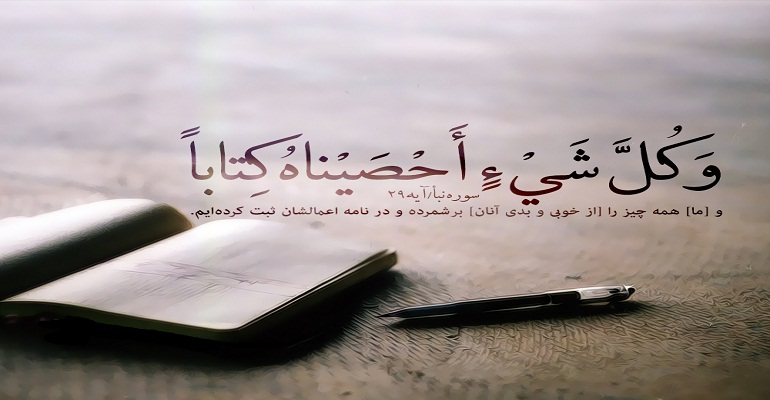 وَكُلَّ شَيْءٍ أَحْصَيْنَاهُ كِتَاباً
سوره نبأ/آیه ۲۹
و [ما] همه چیز را [از خوبی و بدی آنان] برشمرده و در نامه اعمالشان ثبت کرده‌ایم.